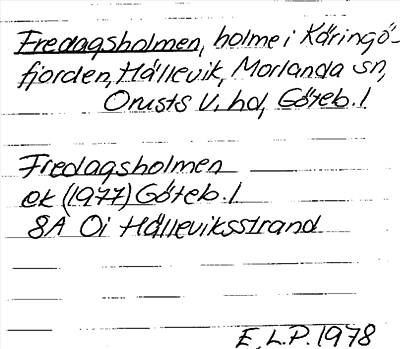 Fredagsholmen, holme i Käringö-
fjorden, Hällevik, Morlanda sn,
Orusts V. hd, Göteb. l
Fredagsholmen
ek (1977) Göteb. l
8A Oi Hälleviksstrand
E.L.P. 1978